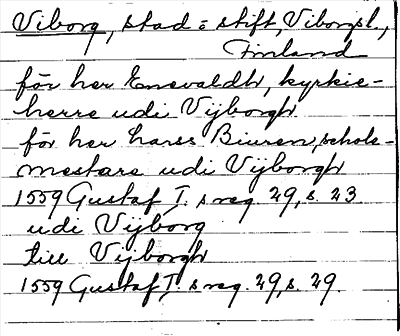 Viborg, stad o stift, Viborgsl.,
Finland
för her Enevaldh, kyrkie-
herre udi Vijborgh
för her hanss Biuren, schole-
mestare udi Vijborgh
1559 Gustaf I:s reg. 29, s. 23
udi Vijborg
till Vijborgh
1559 Gustaf I:s reg. 29, s. 29.